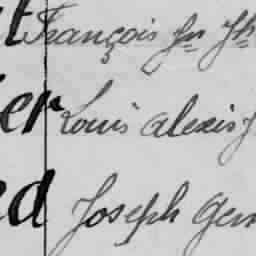 t François fn Jh
er Louis alexis J
ed Joseph Ger